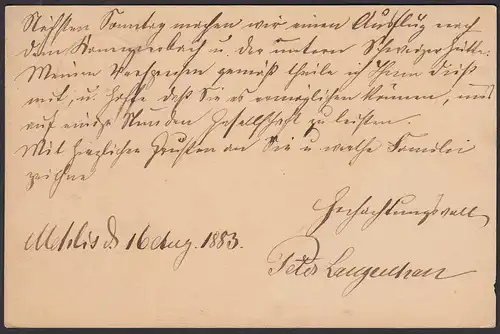 Nächsten Sonntag machen wir einen Ausflug nach
dem Kanzersbach u. der untern Schweizer Hütte.
Meinem Versprechen gemäß theile ich Ihnen dieß
mit, u. hoffe daß Sie es ermöglichen können, uns
auf einige Stunden Gesellschaft zu leisten.
Mit herzlichen Grüßen an Sie u. werthe Familie
zeichne
Hochachtungsvoll
Mehlis d 16 Aug. 1883.
Peter Langenhan